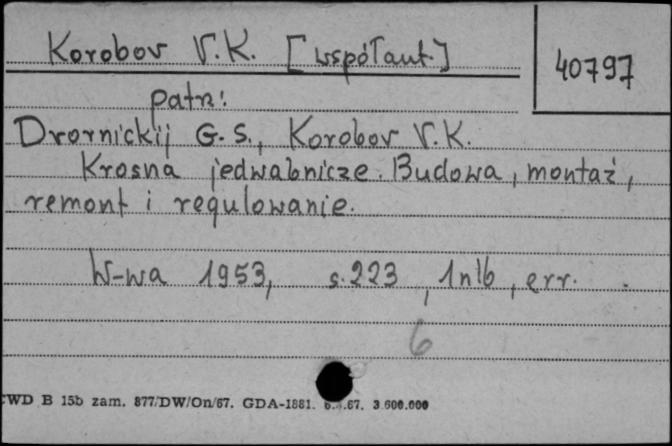 Korobov V.K. [współaut.]
40797
patrz:
Drornickij G.S., Korobov V.K.
Krosna jedwabnicze. Budowa, montaż,
remont i regulowanie.
W-wa 1953, s.223, 1nlb, err.
6
CWD B 15b zam. 877/DW/On/67. GDA-1881. .67. 3.600.000